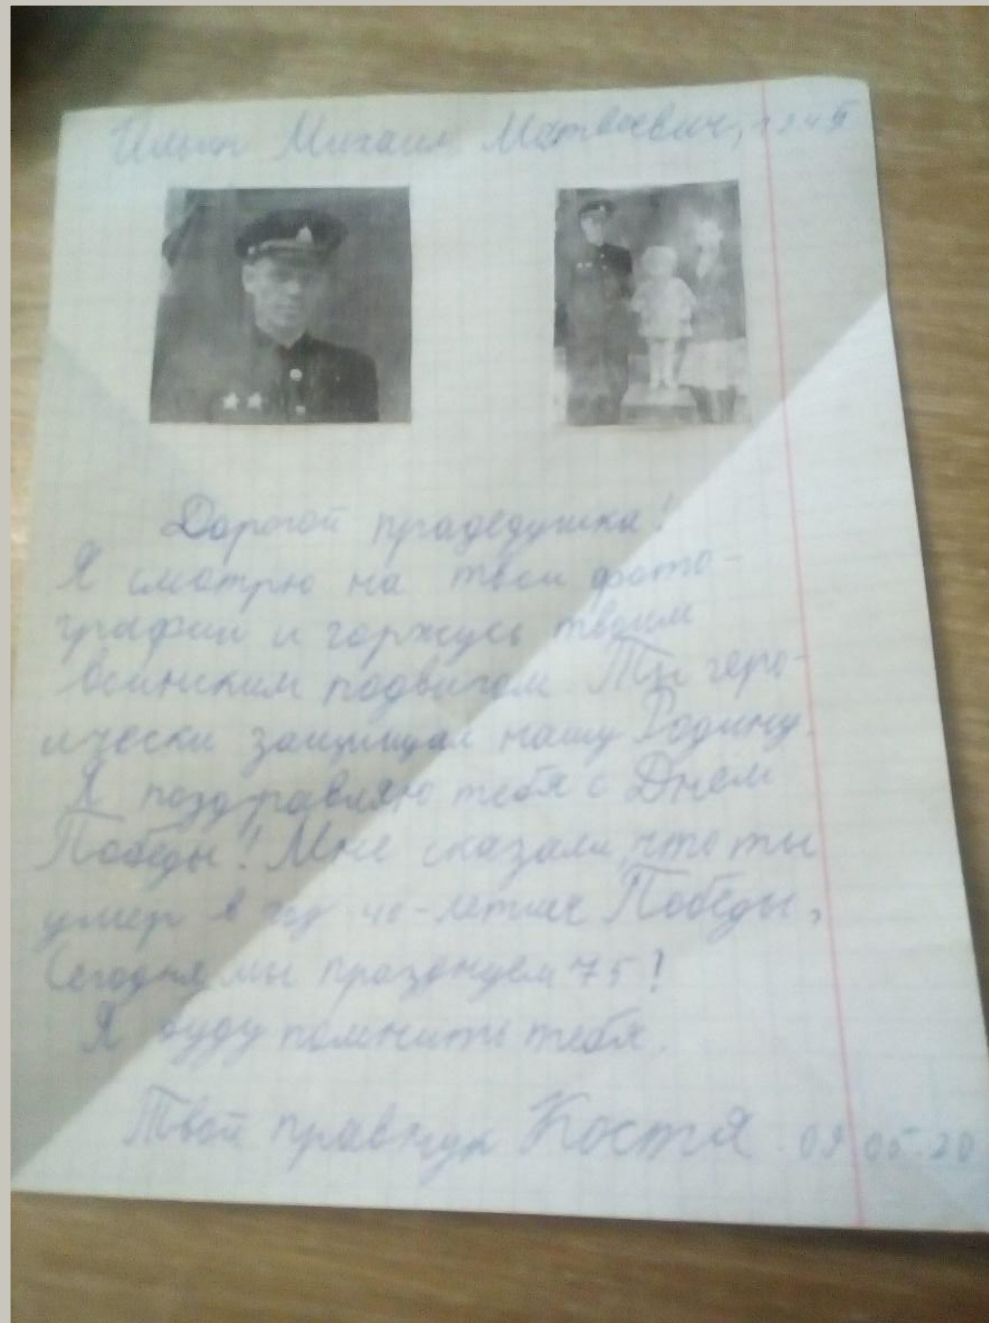 Ильин Михаил Матвеевич, 1945
Дорогой прадедушка!
Я смотрю на твои фото-
графии и горжусь твоим
воинским подвигом. Ты геро-
ически защищал нашу Родину.
Я поздравляю тебя с Днем
Победы! Мне сказали, что ты
умер в год 40-летия Победы,
Сегодня мы празднуем 75!
Я буду помнить тебя.
Твой правнук Костя. 09.05.20